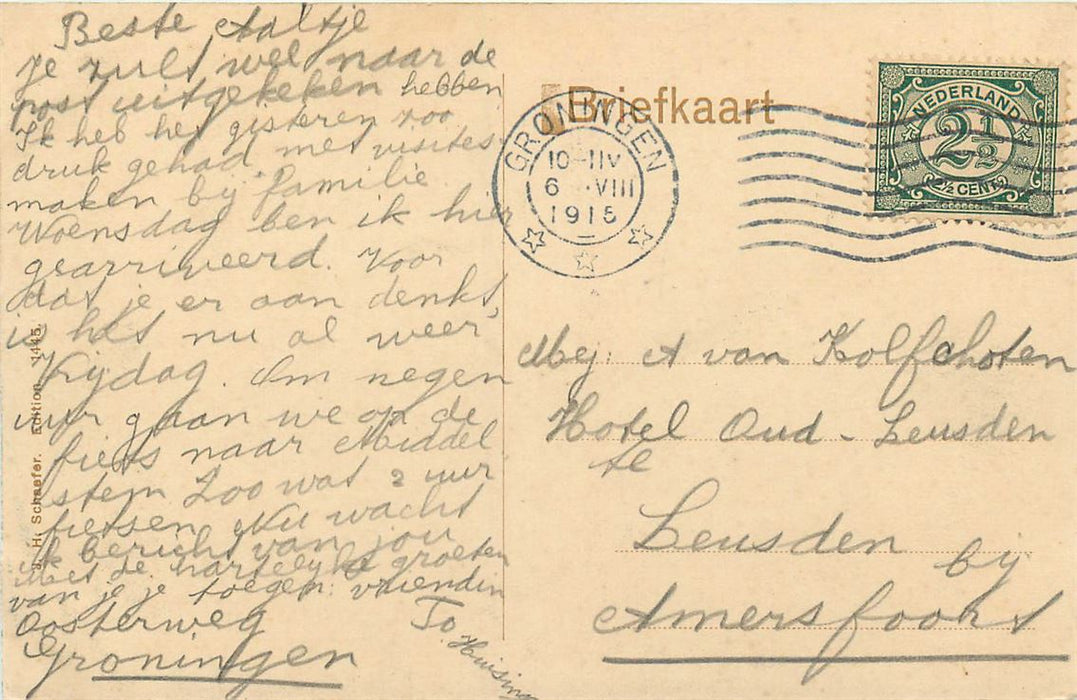 Beste Aaltje
je zult wel naar de
post uitgekeken hebben
Ik heb het gisteren zoo
druk gehad met visites
maken by familie.
Woensdag ben ik hier
gearriveerd. Voor
dat je er aan denkt,
is het nu al weer
Vrijdag. Om negen
uur gaan we op de
fiets naar Middel
stem Zoo wat 2 uur
fietsen. Nu wacht
ik bericht van jou
Met de hartelyke groeten
van je je toegen: vriendin
To Huising
Oosterweg
Groningen
J. H. Schaefer. Edition 1445.
Briefkaart
GRONINGEN
10-11V
6 VIII
1915
NEDERLAND
2½
2½ CENT
Mej: A van Kolfchoten
Hotel Oud-Leusden
te
Leusden
by
Amersfoort